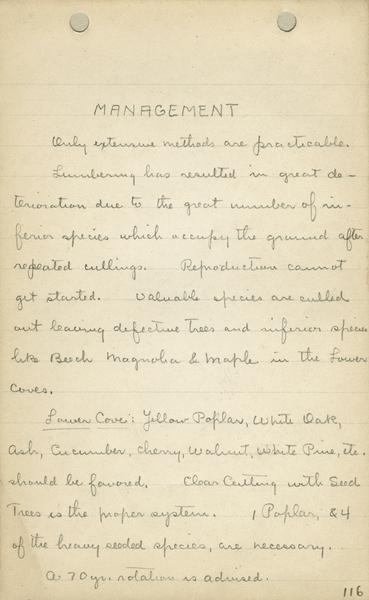 MANAGEMENT
Only extensive methods are practicable.
Lumbering has resulted in great de-
terioration due to the great number of in-
ferior species which occupy the ground after
repeated cullings. Reproduction cannot
get started. Valuable species are culled
out leaving defective trees and inferior species
like Beech Magnolia & Maple in the Lower
Coves.
Lower Cove: Yellow Poplar, White Oak,
Ash, Cucumber, Cherry, Walnut, White Pine, etc.
should be favored. Clear Cutting with Seed
Trees is the proper system. 1 Poplar, & 4
of the heavy seeded species, are necessary.
A 70 yr. rotation is advised.
116